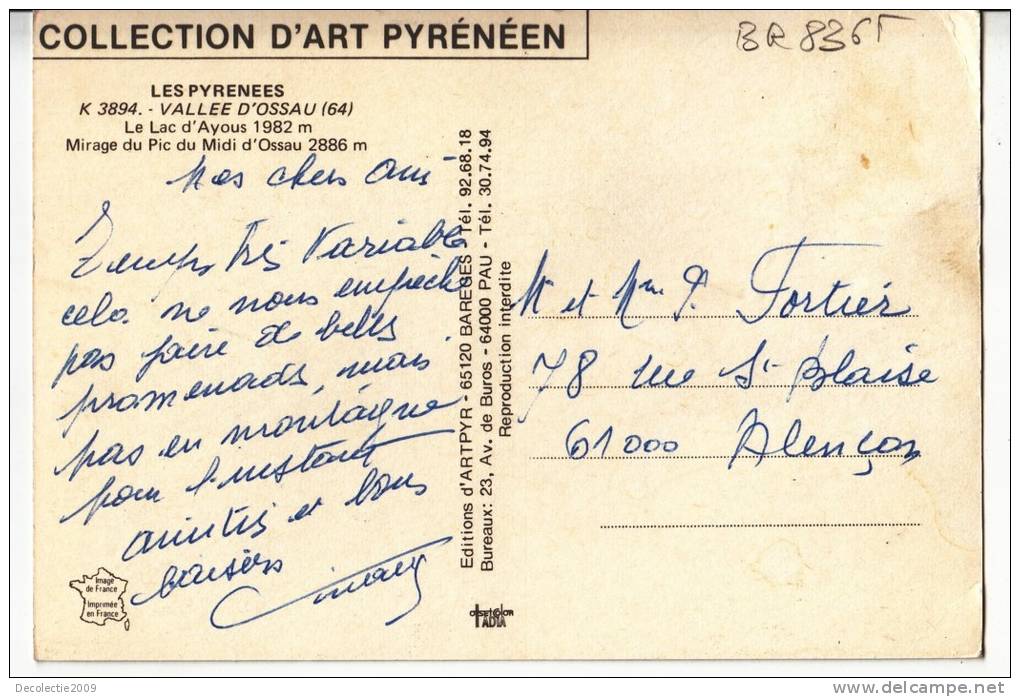 COLLECTION D'ART PYRÉNÉEN
BR 8365
LES PYRENEES
K 3894. - VALLEE D'OSSAU (64)
Le Lac d'Ayous 1982 m
Mirage du Pic du Midi d'Ossau 2886 m
Mes chers Amis
Temps Très Variable
cela ne nous empêche
pas faire de belles
promenades, mais
pas en montagne
pour l'instant
amitiés et bons
baisers
Editions d'ARTPYR - 65120 BAREGES - Tél. 92.68.18
Bureaux: 23, Av. de Buros - 64000 PAU - Tél. 30.74.94
Reproduction interdite
M et Mme P. Fortier
78 rue St Blaise
61000 Alençon
Image
de France
Imprimée
en France
OFFSET COLOR
TADIA
Decolectie2009
www.delcampe.net